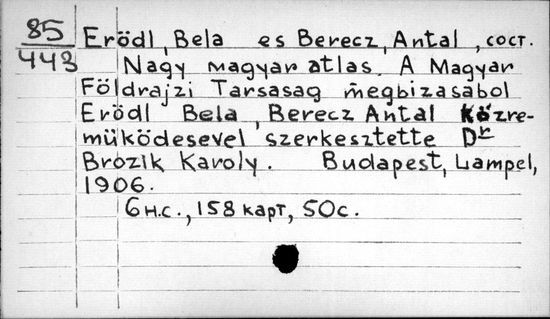 85 Erödl, Bela es Berecz, Antal, сост.
443 Nagy magyar atlas. A Magyar
Földrajzi Tarsasag megbizasabol
Erödl Bela, Berecz Antal közre-
müködesevel szerkesztette Dr
Brozik Karoly. Budapest, Lampel,
1906.
6 н.с., 158 карт, 50 с.